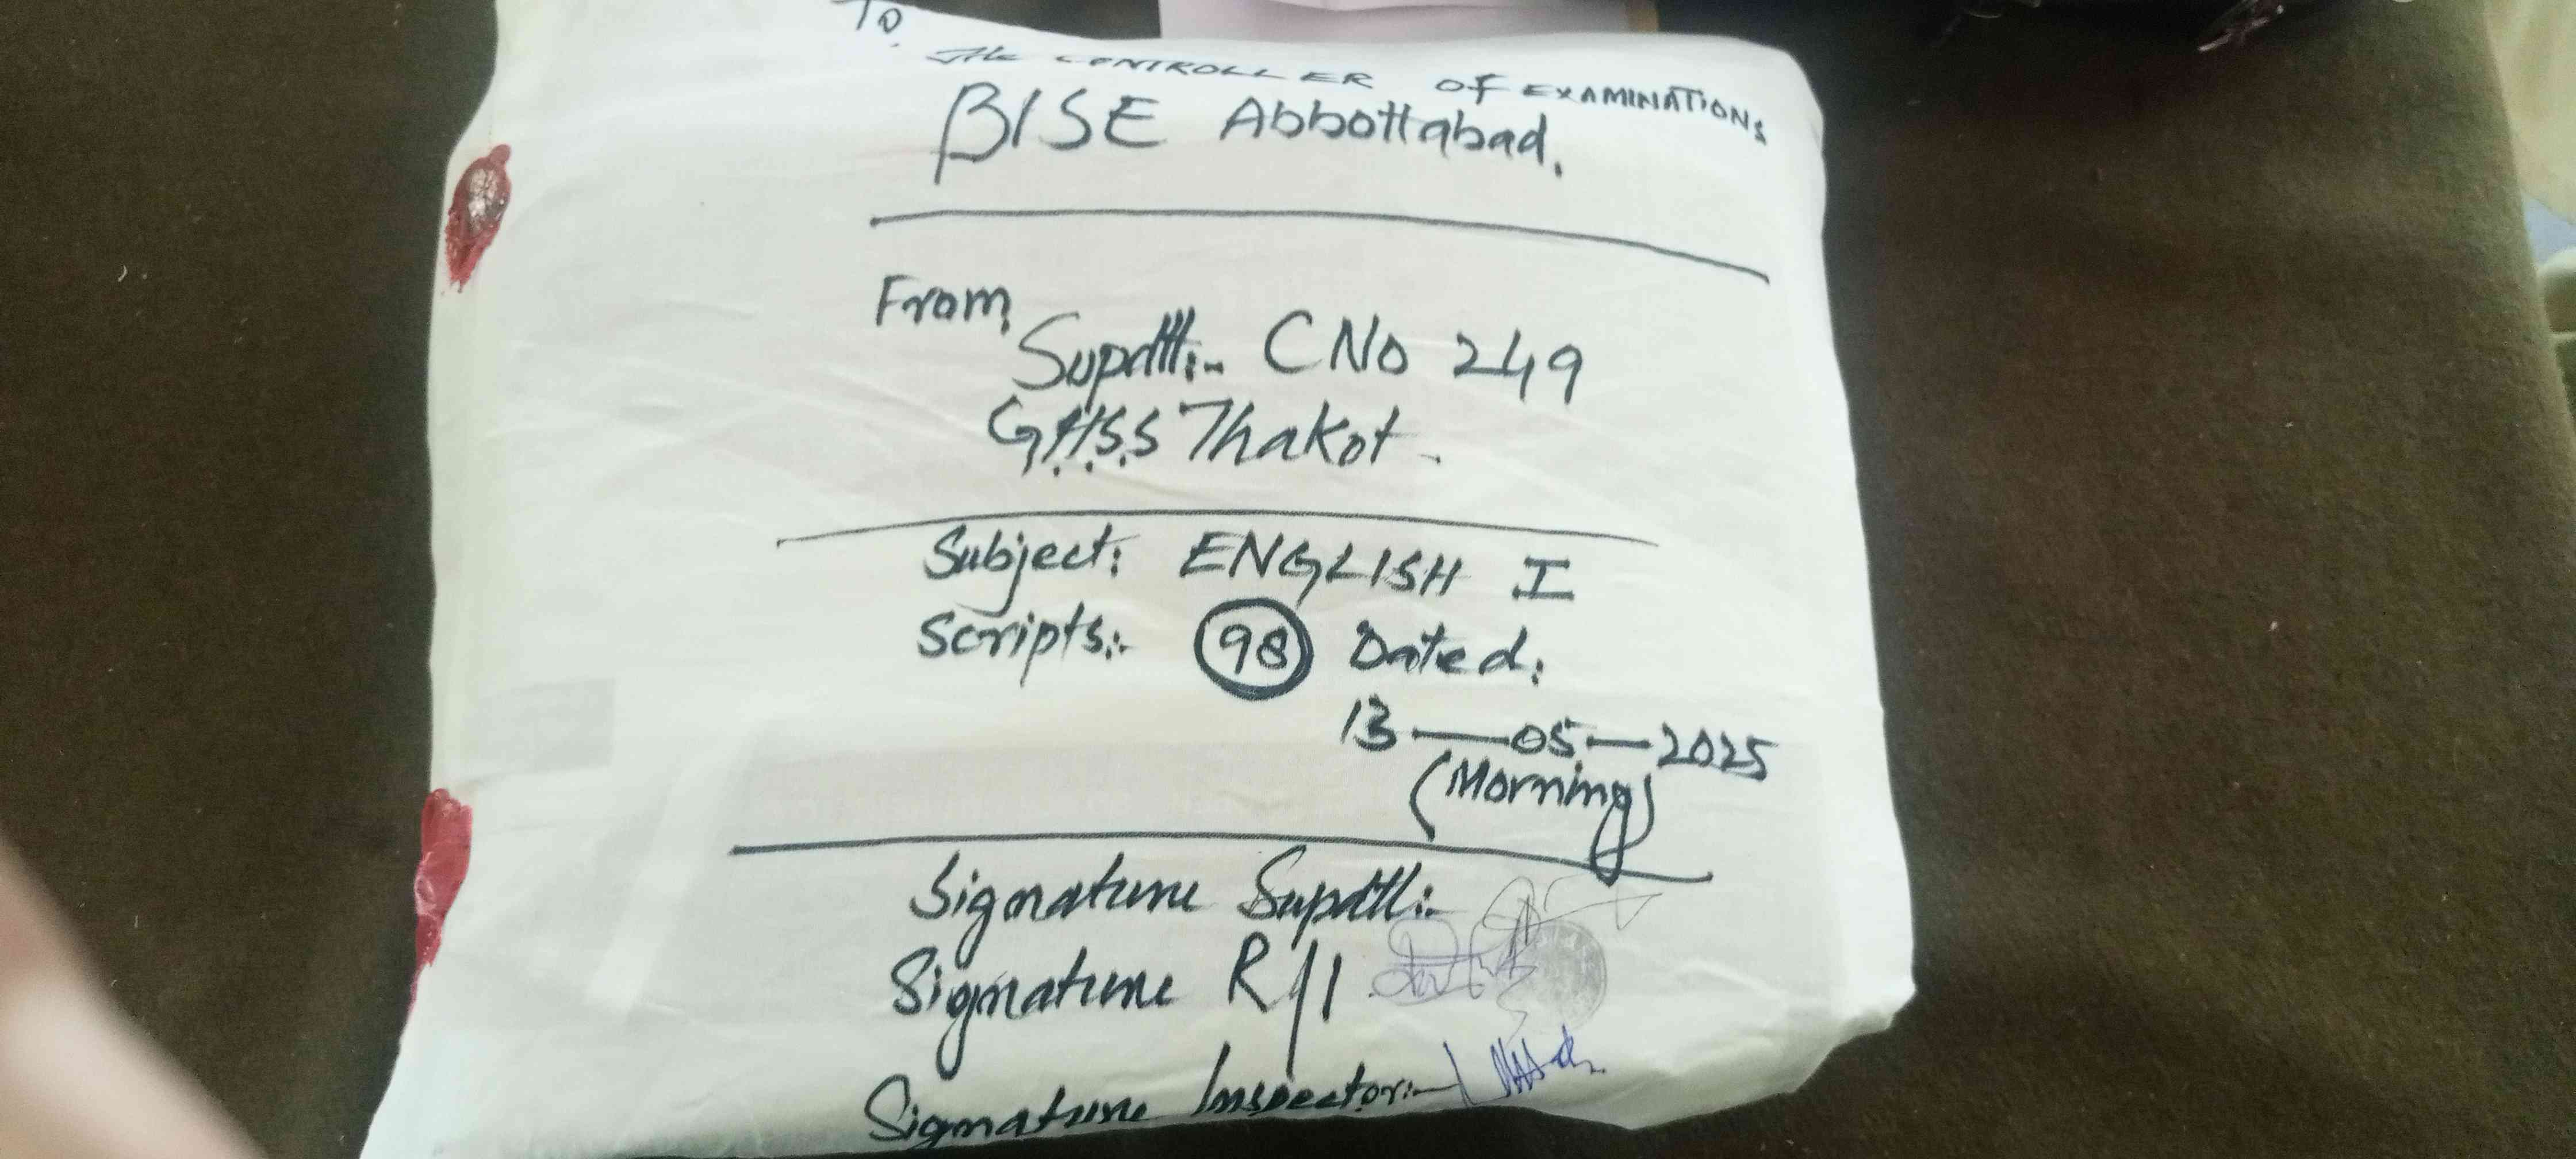 To,
The CONTROLLER OF EXAMINATIONS
BISE Abbottabad.
From,
Supdtt:- C No 249
G.H.S.S Thakot.
Subject: ENGLISH I
Scripts:- 98 Dated:
13-05-2025
(Morning)
Signature Supdtt:-
Signature R/I
Signature Inspector:-